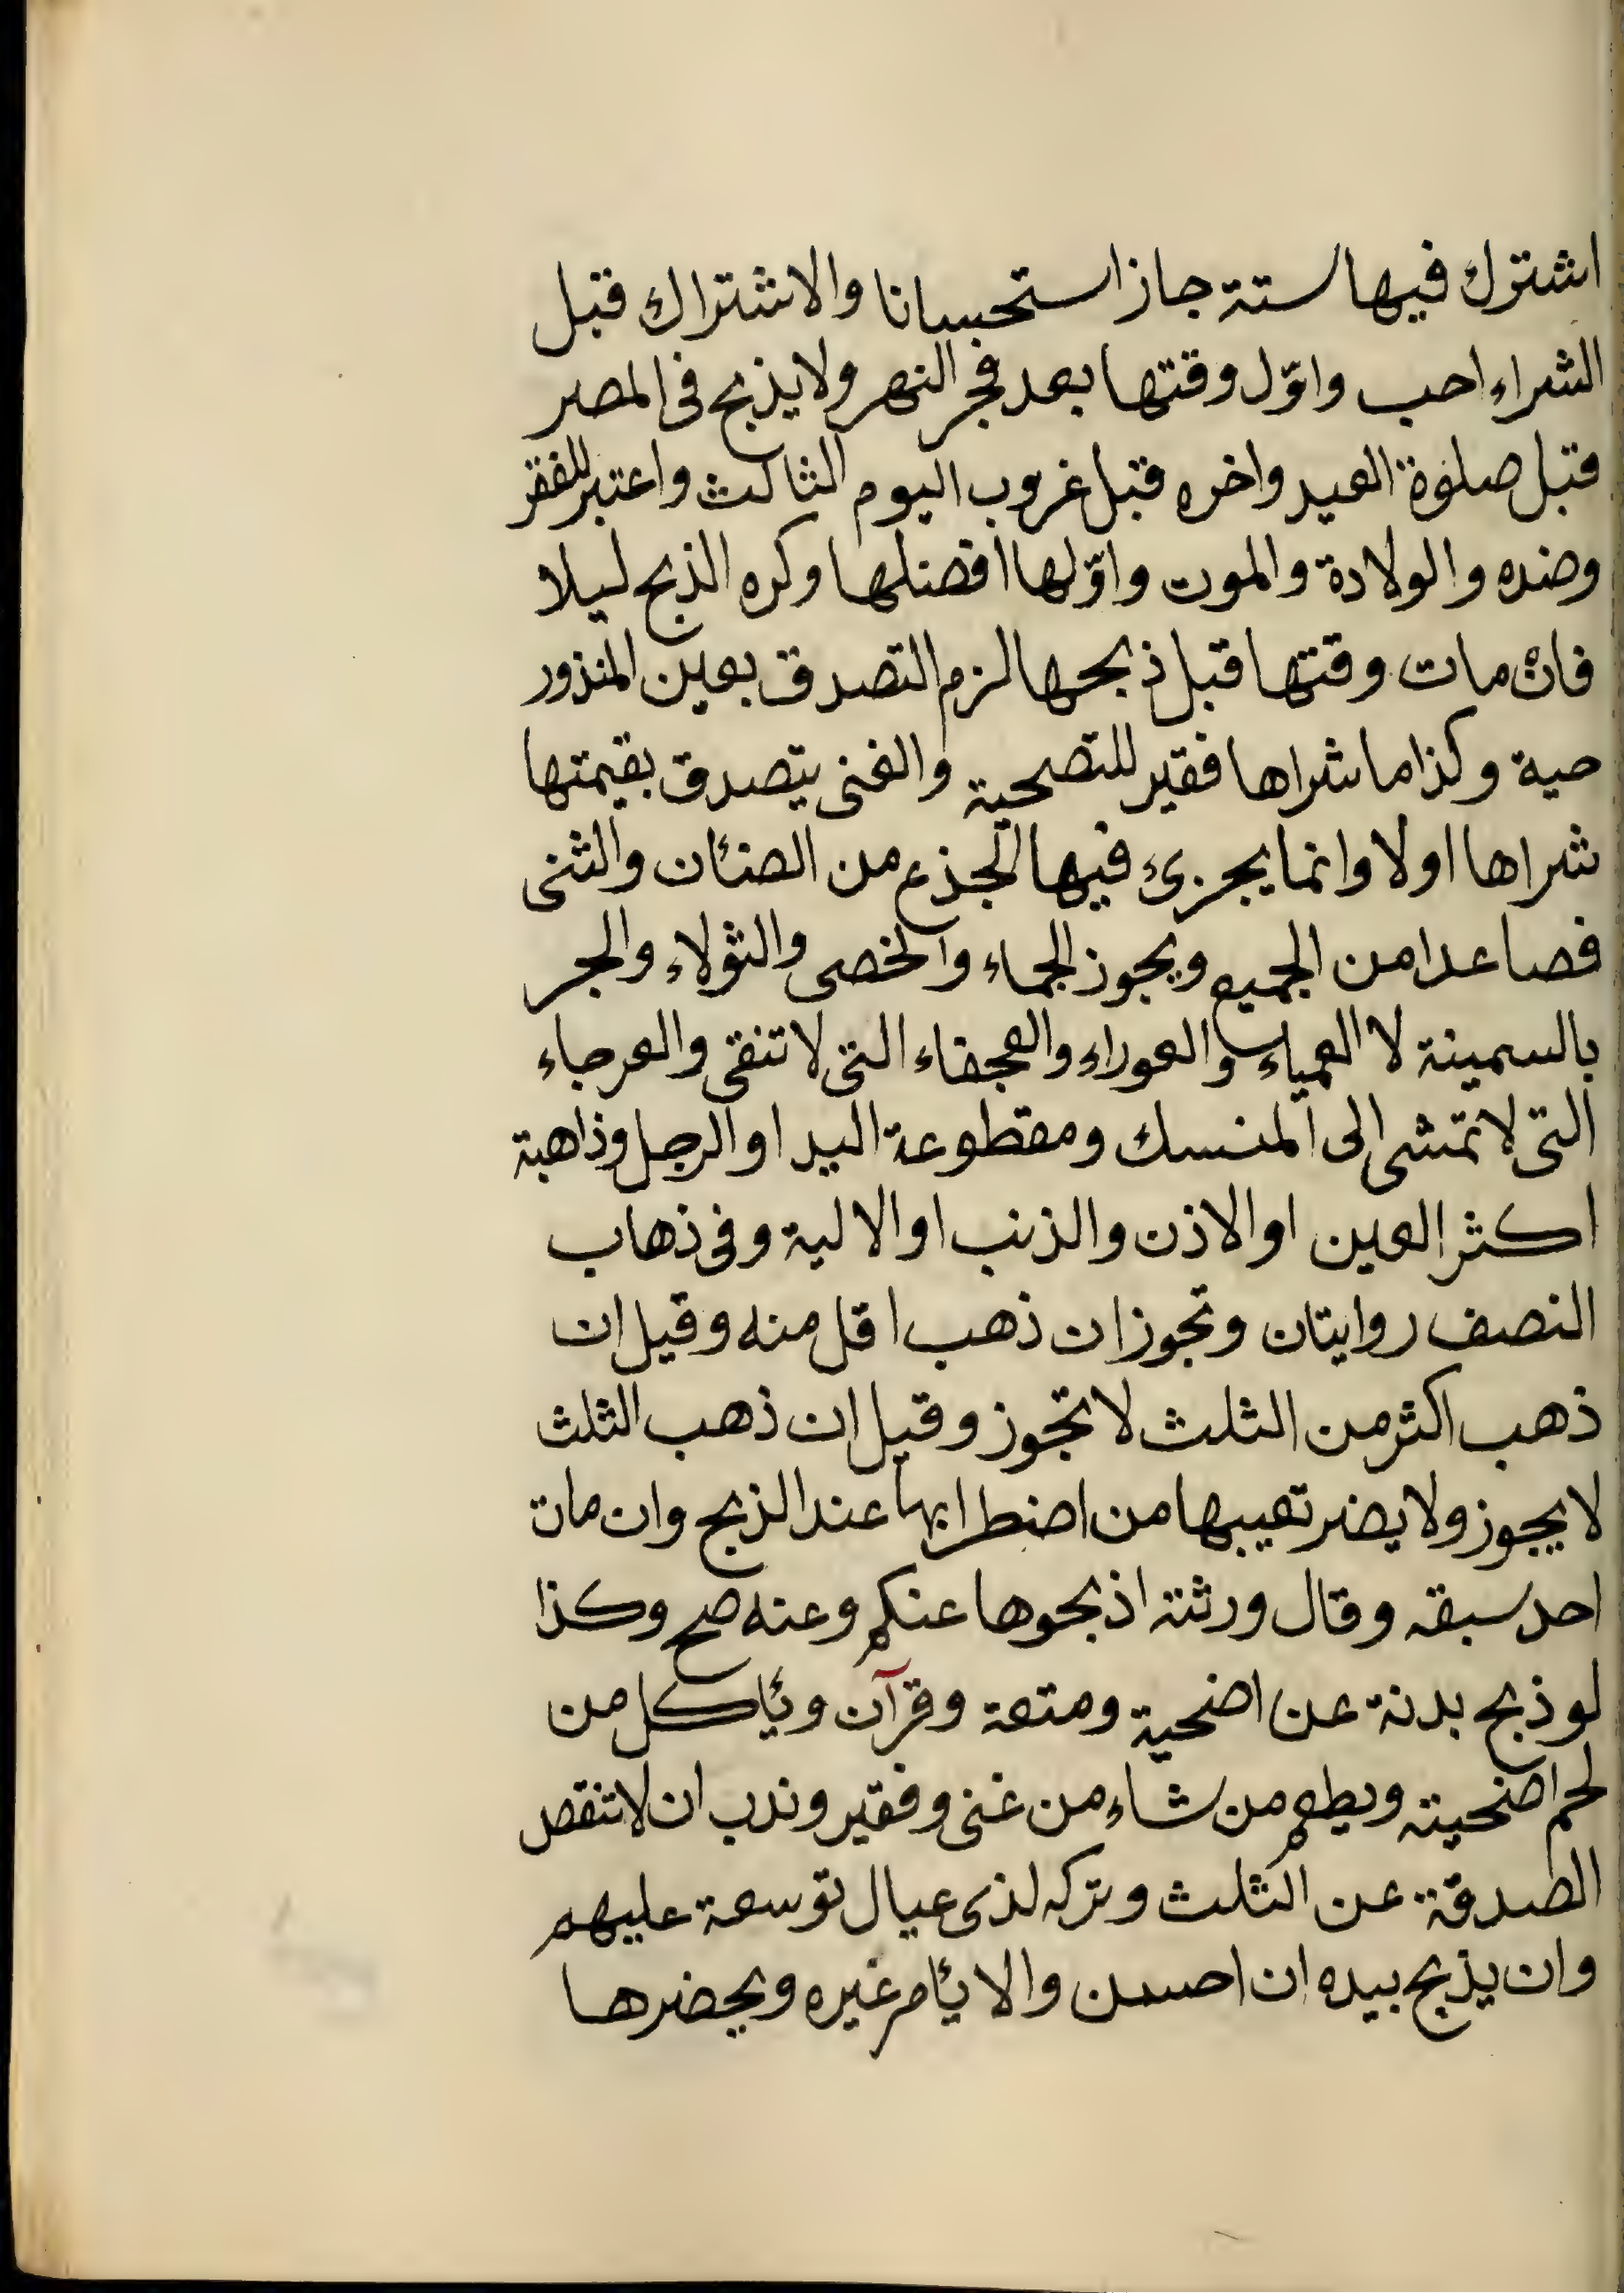 اشترك فيها ستة جاز استحسانا والاشتراك قبل
الشراء احب واوّل وقتها بعد فجر النحر ولا يذبح فى المصر
قبل صلوة العيد واخره قبل غروب اليوم الثالث واعتبر للفقر
وضده والولادة والموت واوّلها افضلها وكره الذبح ليلا
فان مات وقتها قبل ذبحها لزم التصدق بعين المنذور
حية وكذا ما شراها فقير للتضحية والغنى يتصدق بقيمتها
شراها اولا وانما يجزئ فيها الجذع من الضئان والثنى
فصاعدا من الجميع ويجوز الجماء والخصى والثولاء والجر
بالسمينة لا العمياء والعوراء والعجفاء التى لا تنقى والعرجاء
التى لا تمشى الى المنسك ومقطوعة اليد او الرجل وذاهبة
اكثر العين او الاذن والذنب او الالية وفى ذهاب
النصف روايتان وتجوز ان ذهب اقل منه وقيل ان
ذهب اكثر من الثلث لا تجوز وقيل ان ذهب الثلث
لا يجوز ولا يضر تعيبها من اضطرابها عند الذبح وان مات
احد سبقه وقال ورثته اذبحوها عنكم وعنه صح وكذا
لو ذبح بدنة عن اضحية ومتعة وقرآن ويئاكل من
لحم اضحيته ويطعم من شاء من غنى وفقير وندب ان لا تنقص
الصدقة عن الثلث وتركه لذى عيال توسعة عليهم
وان يذبح بيده ان احسن والا يئامر غيره ويحضرها